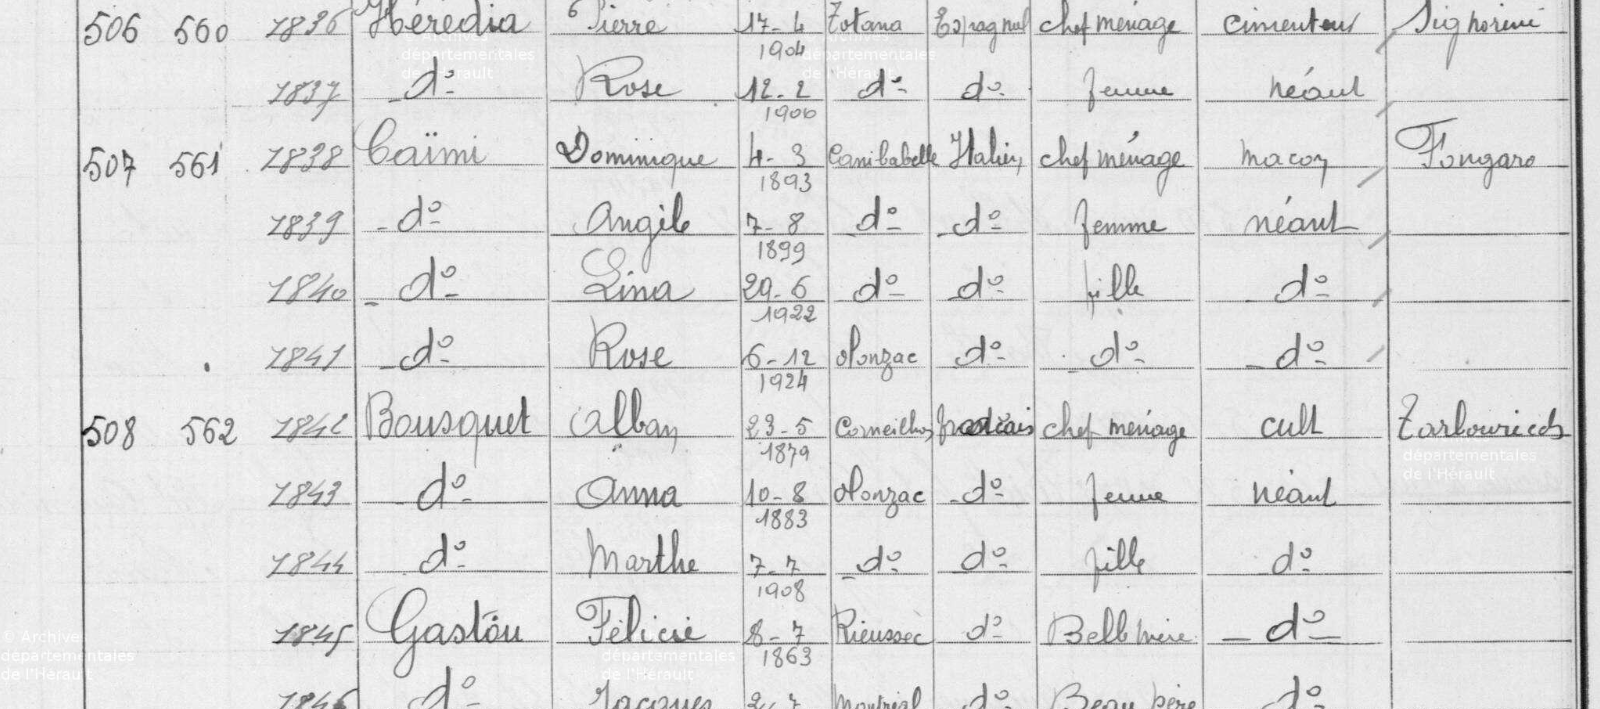 506 560 1836 Hérédia Pierre 17-4 1904 Totana Espagnol chef ménage cimenteur Signorini
1837 do Rose 12-2 1906 do do femme néant
507 561 1838 Caïmi Dominique 4-3 1893 Canibabelle Italien chef ménage maçon Fongaro
1839 do Angèle 7-8 1899 do do femme néant
1840 do Lina 29-6 1922 do do fille do
1841 do Rose 6-12 1924 Olonzac do do do
508 562 1842 Bousquet Alban 23-5 1879 Corneilhan français chef ménage cult Tarbouriech
1843 do Anna 10-8 1883 Olonzac do femme néant
1844 do Marthe 7-7 1908 do do fille do
1845 Gastou Félicie 8-7 1863 Rieussec do Belle mère do
1846 do Jacques Montréal do Beau père do
© Archives
départementales
de l'Hérault